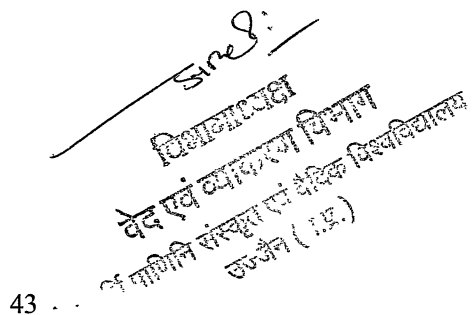 विभागाध्यक्ष
वेद एवं व्याकरण विभाग
पाणिनि संस्कृत एवं वैदिक विश्वविद्यालय
उज्जैन (
43